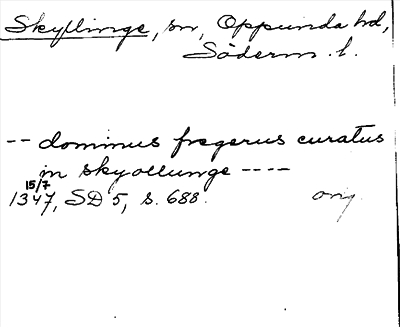 Skyllinge, sn, Oppunda hd,
Söderm. l.
-- dominus fregerus curatus
in skyollunge ----
15/7
1347, SD 5, s. 688. orig.